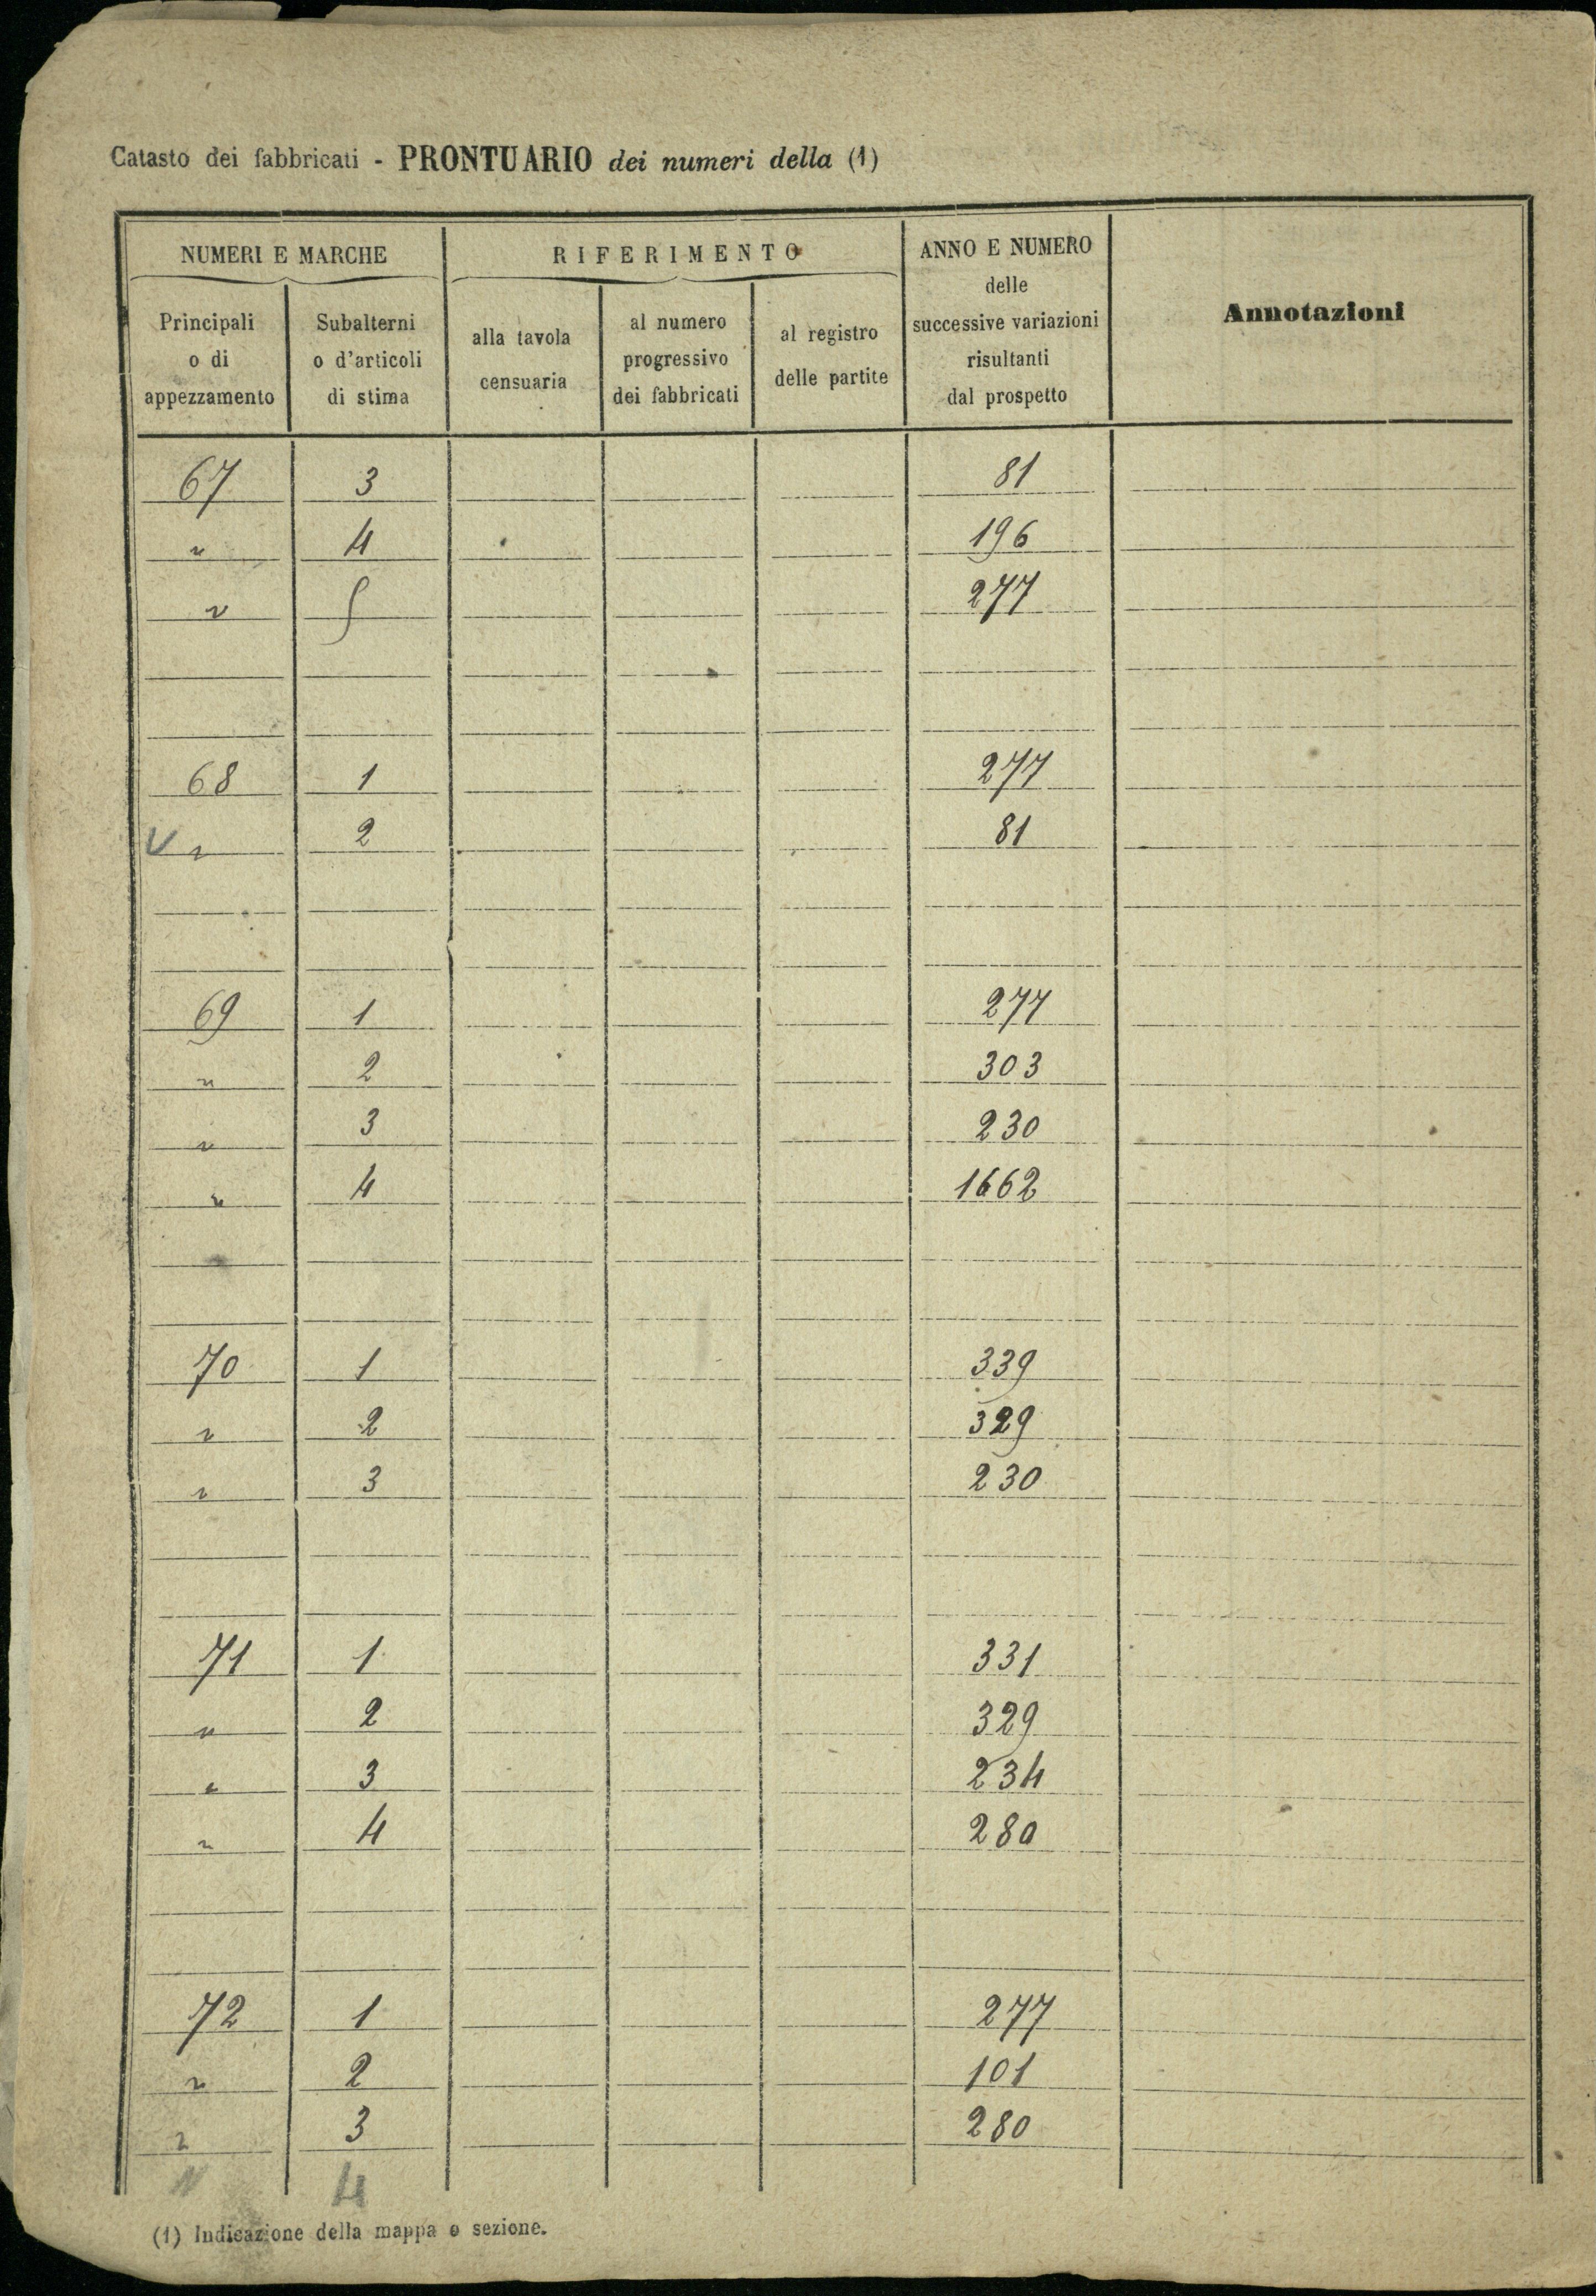 Catasto dei fabbricati - PRONTUARIO dei numeri della (1)
NUMERI E MARCHE
RIFERIMENTO
ANNO E NUMERO
delle
successive variazioni
risultanti
dal prospetto
Annotazioni
Principali
o di
appezzamento
Subalterni
o d'articoli
di stima
alla tavola
censuaria
al numero
progressivo
dei fabbricati
al registro
delle partite
67 3 81
" 4 196
" 5 277
68 1 277
V " 2 81
69 1 277
" 2 303
" 3 230
" 4 1662
70 1 339
" 2 329
" 3 230
71 1 331
" 2 329
" 3 234
" 4 280
72 1 277
" 2 101
" 3 280
" 4
(1) Indicazione della mappa o sezione.